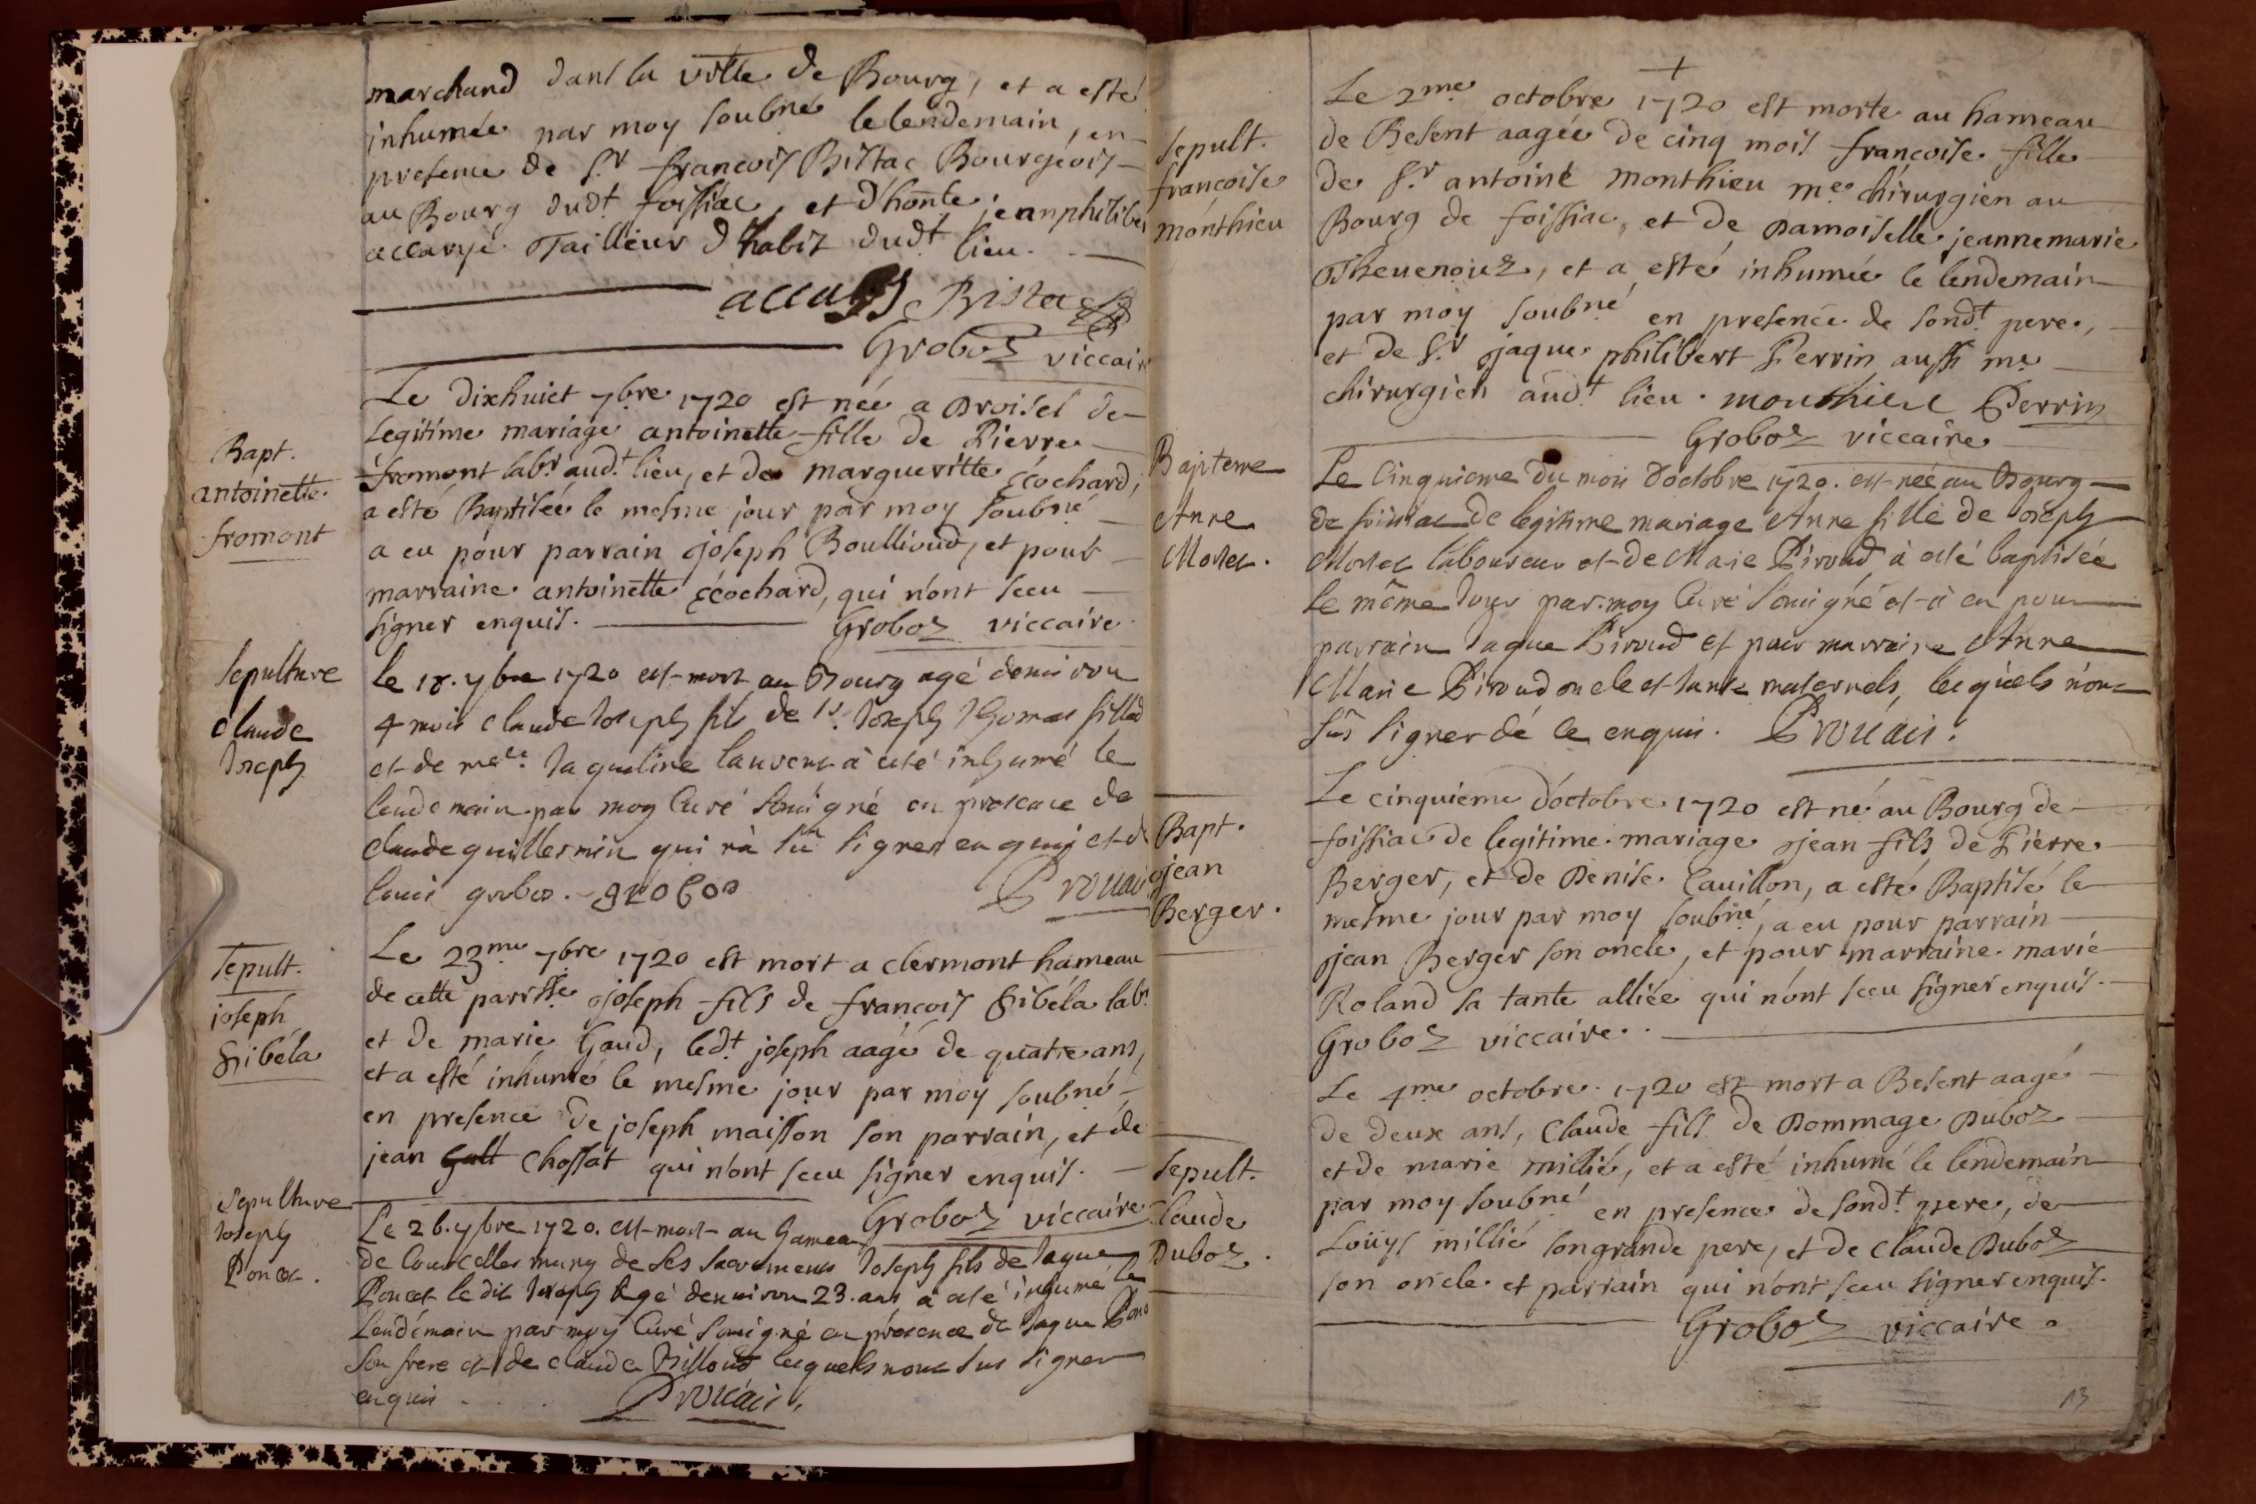 marchand dans la ville de Bourg, et a esté
inhumée par moy soubné le lendemain, en
presence de Sr françois Bistac Bourgeois
au Bourg dudt foissiac, et d'honte jeanphilibe
accarye Tailleur d'habit dudt lieu.
Bistac
Groboz viccair
Bapt.
antoinette
fromont
Le dixhuict 7bre 1720 est née a Droisel de
Legitime mariage antoinette fille de Pierre
fromont labr audt lieu, et de margueritte Ecochard,
a esté Baptisée le mesme jour par moy soubné
a eu pour parrain joseph Boullioud, et pour
marraine antoinette Ecochard, qui n'ont sceu
signer enquis. Groboz viccaire
Sepulture
Claude
Joseph
le 18. 7bre 1720 est mort au Bourg agé denviron
4 mois Claude Joseph fils de Sr. Joseph Thomas
et de melle Jaqueline laurent à eté inhumé le
lendemain par moy Curé Souigné en presence de
Claude guillermin qui n'a sû signer enquis et d
louis grobos. grobos Prouais
Sepult.
joseph
Sibéla
Le 23me 7bre 1720 est mort a clermont hameau
de cette parisse joseph fils de françois Sibéla labr
et de marie Gaud, ledt joseph aagé de quatre ans,
et a esté inhumé le mesme jour par moy soubné
en presence de joseph maisson son parrain, et de
jean Chossat qui n'ont sceu signer enquis.
Groboz viccaire
Sepulture
Joseph
Poncet.
Le 26. 7bre 1720. est mort au hameau
de Courcelles muny de ses sacrements Joseph fils de Jaque
Poncet le dit Joseph agé denviron 23. ans a eté inhumé le
Lendémain par moy Curé Souigné en présence de Jaque Ponc
Son frere et de claude Billoud lesquels n'ont sus signer
enquis Prouais,
+
Sepult.
françoise
monthieu
Le 2me octobre 1720 est morte au hameau
de Besent aagée de cinq mois françoise fille
de Sr antoine monthieu me chirurgien au
Bourg de foissiac, et de Damoiselle jeannemarie
Theuenoiez, et a esté inhumée le lendemain
par moy soubné en presence de sondt pere,
et de Sr jaque philibert Perrin aussi me
chirurgien audt lieu. monthieu Perrin
Groboz viccaire
Bapteme
Anne
Morel.
Le Cinquieme du mois d'octobre 1720. est née au Bourg
de foissiac de legitime mariage Anne fille de Joseph
Morel laboureur et de Marie Piroud à eté baptisée
le même Jour par moy Curé Souigné et à eu pour
parrain Jaque Piroud et pour marraine Anne
Marie Piroud oncle et tante maternels, lesquels n'ont
sûs signer de ce enquis. Prouais.
Bapt.
jean
Berger.
Le cinquieme d'octobre 1720 est né au Bourg de
foissiac de legitime mariage jean fils de Pierre
Berger, et de Denise Cauillon, a esté Baptisé le
mesme jour par moy soubné, a eu pour parrain
jean Berger son oncle, et pour marraine marie
Roland sa tante alliée qui n'ont sceu signer enquis.
Groboz viccaire.
Sepult.
Claude
Duboz.
Le 4me octobre 1720 est mort a Besent aagé
de deux ans, Claude fils de Dommage Duboz
et de marie millié, et a esté inhumé le lendemain
par moy soubné en presence de sondt pere, de
Loüys millié songrande pere, et de claude Duboz
son oncle et parrain qui n'ont sceu signer enquis.
Groboz viccaire.
13